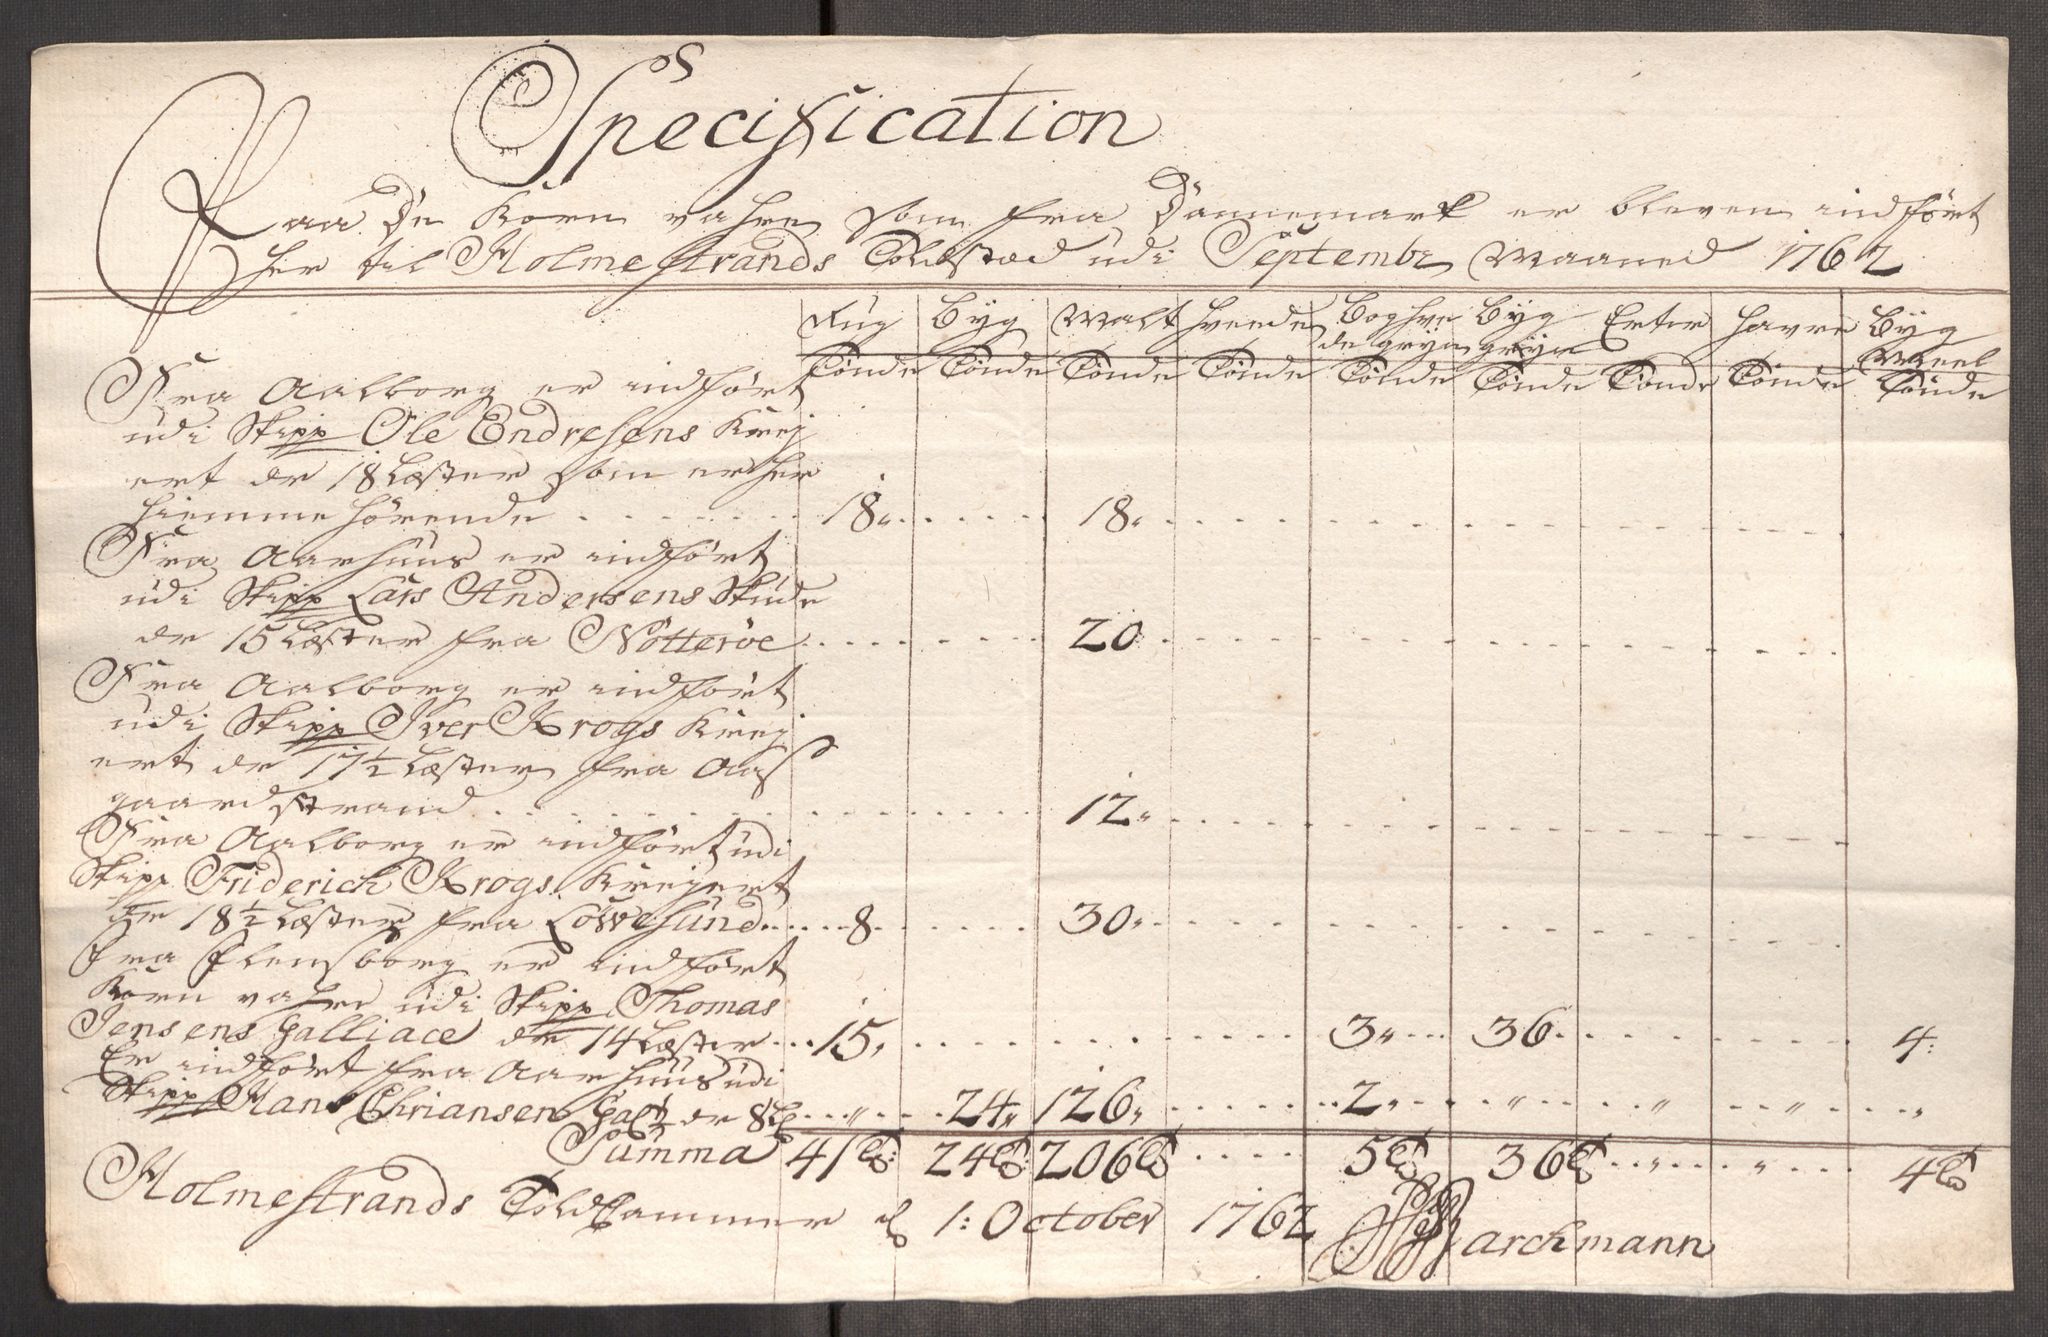 Specification
Paa De Korn vahre som fra Dannemark er bleven indført
her til Holmestrands Toldsted udi Septembr Maaned 1762
Rug Byg Malt Hvede Boghve Byg Erter Havre Byg
de gryn gryn Meel
Tönde Tönde Tönde Tönde Tönde Tönde Tönde Tönde Tönde
Fra Aalborg er indført
udi Skipp Ole Endresens Krej
ert dr 18 Læster som er her
hiemme hörende 18 18
Fra Aarhuus er indført
udi Skipp Lars Andersens Skude
dr 15 Læster fra Nötteröe 20
Fra Aalborg er indført
udi Skipp Iver Krogs Krej
ert dr 17½ Læster fra Aas
gaardstrand 12
Fra Aalborg er indført udi
Skipp Friderich Krogs Krejert
dr 18½ Læster fra Löwesund 8 30
Fra Flensborg er indført
Korn vahre udi Skipp Thomas
Jensens Galliace dr 14 Læster 15 3 36 4
Er indført fra Aarhuus udi
Skipp Hans Chriansen dr 8 " 24 126 2 " " " "
Summa 41 24 206 5 36 " " 4
Holmestrands Toldkammer d 1: October 1762 Barchmann